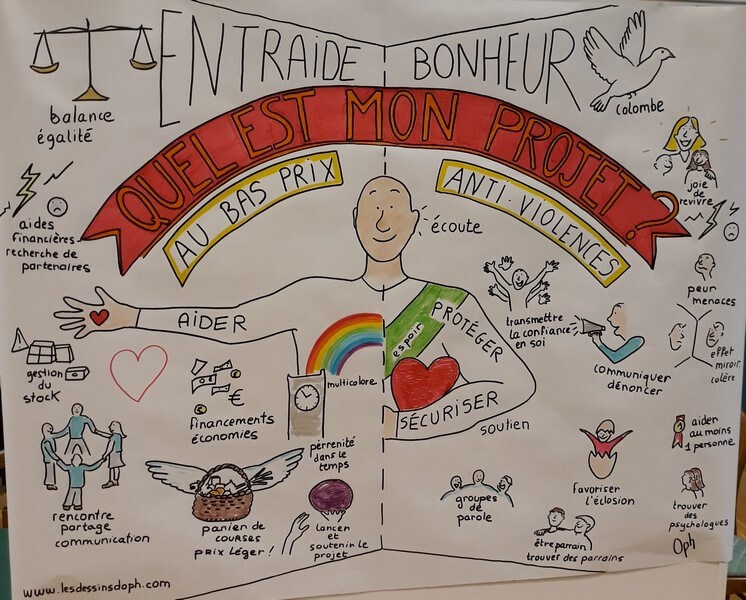 ENTRAIDE
BONHEUR
balance
égalité
colombe
QUEL EST MON PROJET?
AU BAS PRIX
ANTI-VIOLENCES
joie
de
revivre
aides
financières
recherche de
partenaires
écoute
peur
menaces
AIDER
espoir
PROTÉGER
transmettre
la confiance
en soi
communiquer
dénoncer
effet
miroir
colère
gestion
du
stock
€
financements
économies
multicolore
SÉCURISER
soutien
pérrenité
dans le
temps
aider
au moins
1 personne
favoriser
l'éclosion
rencontre
partage
communication
panier de
courses
prix léger !
lancer
et
soutenir le
projet
groupes
de
parole
être parrain
trouver des parrains
trouver
des
psychologues
Oph
www.lesdessinsdoph.com